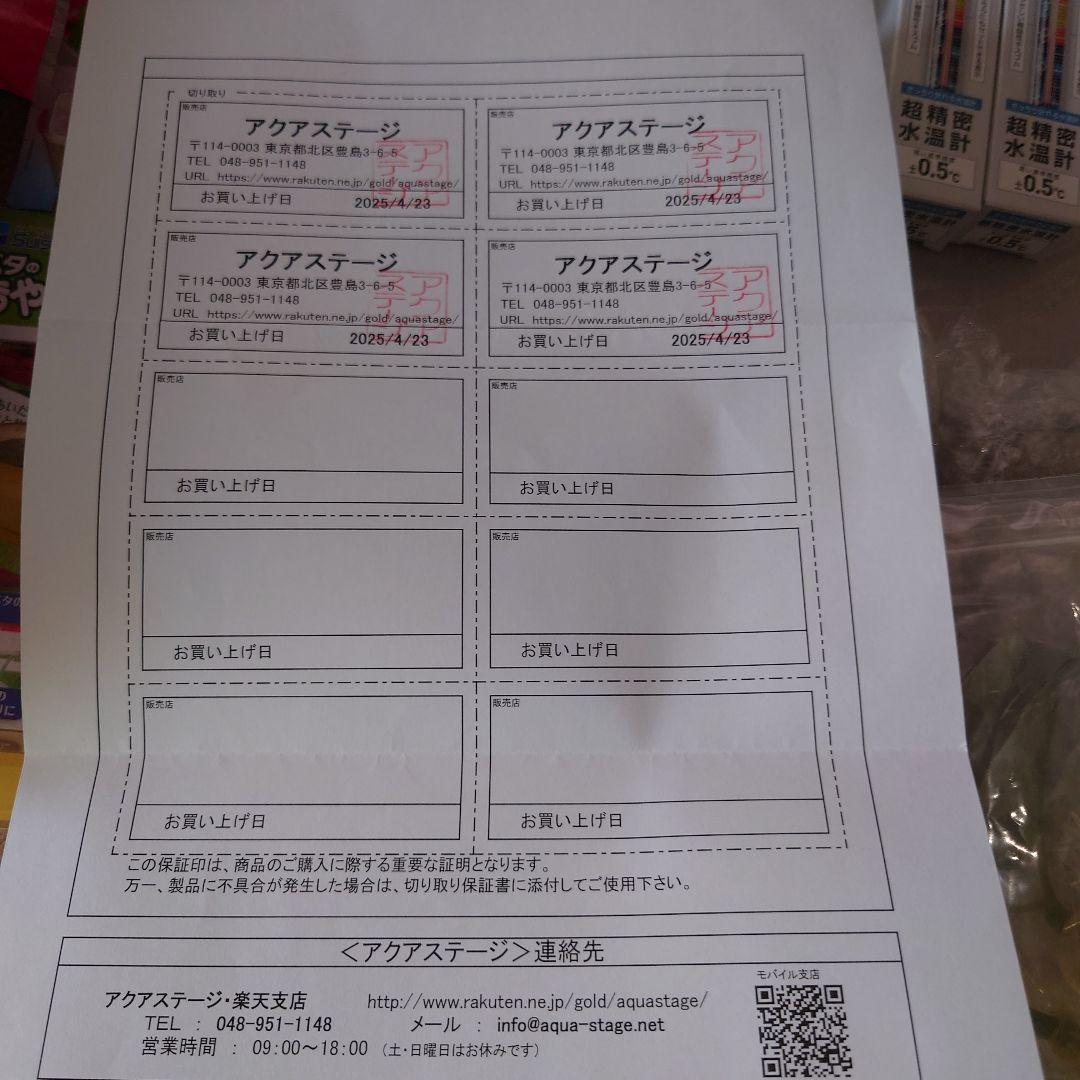 切り取り
販売店
アクアステージ
〒114-0003 東京都北区豊島3-6-5
TEL 048-951-1148
URL https://www.rakuten.ne.jp/gold/aquastage/
お買い上げ日 2025/4/23
アクアステージ
販売店
アクアステージ
〒114-0003 東京都北区豊島3-6-5
TEL 048-951-1148
URL https://www.rakuten.ne.jp/gold/aquastage/
お買い上げ日 2025/4/23
アクアステージ
販売店
アクアステージ
〒114-0003 東京都北区豊島3-6-5
TEL 048-951-1148
URL https://www.rakuten.ne.jp/gold/aquastage/
お買い上げ日 2025/4/23
アクアステージ
販売店
アクアステージ
〒114-0003 東京都北区豊島3-6-5
TEL 048-951-1148
URL https://www.rakuten.ne.jp/gold/aquastage/
お買い上げ日 2025/4/23
アクアステージ
販売店
お買い上げ日
販売店
お買い上げ日
販売店
お買い上げ日
販売店
お買い上げ日
販売店
お買い上げ日
販売店
お買い上げ日
この保証印は、商品のご購入に際する重要な証明となります。
万一、製品に不具合が発生した場合は、切り取り保証書に添付してご使用下さい。
<アクアステージ>連絡先
アクアステージ・楽天支店 http://www.rakuten.ne.jp/gold/aquastage/
TEL : 048-951-1148 メール : info@aqua-stage.net
営業時間 : 09:00～18:00 (土・日曜日はお休みです)
モバイル支店
超精密
水温計
±0.5℃
超精密
水温計
±0.5℃